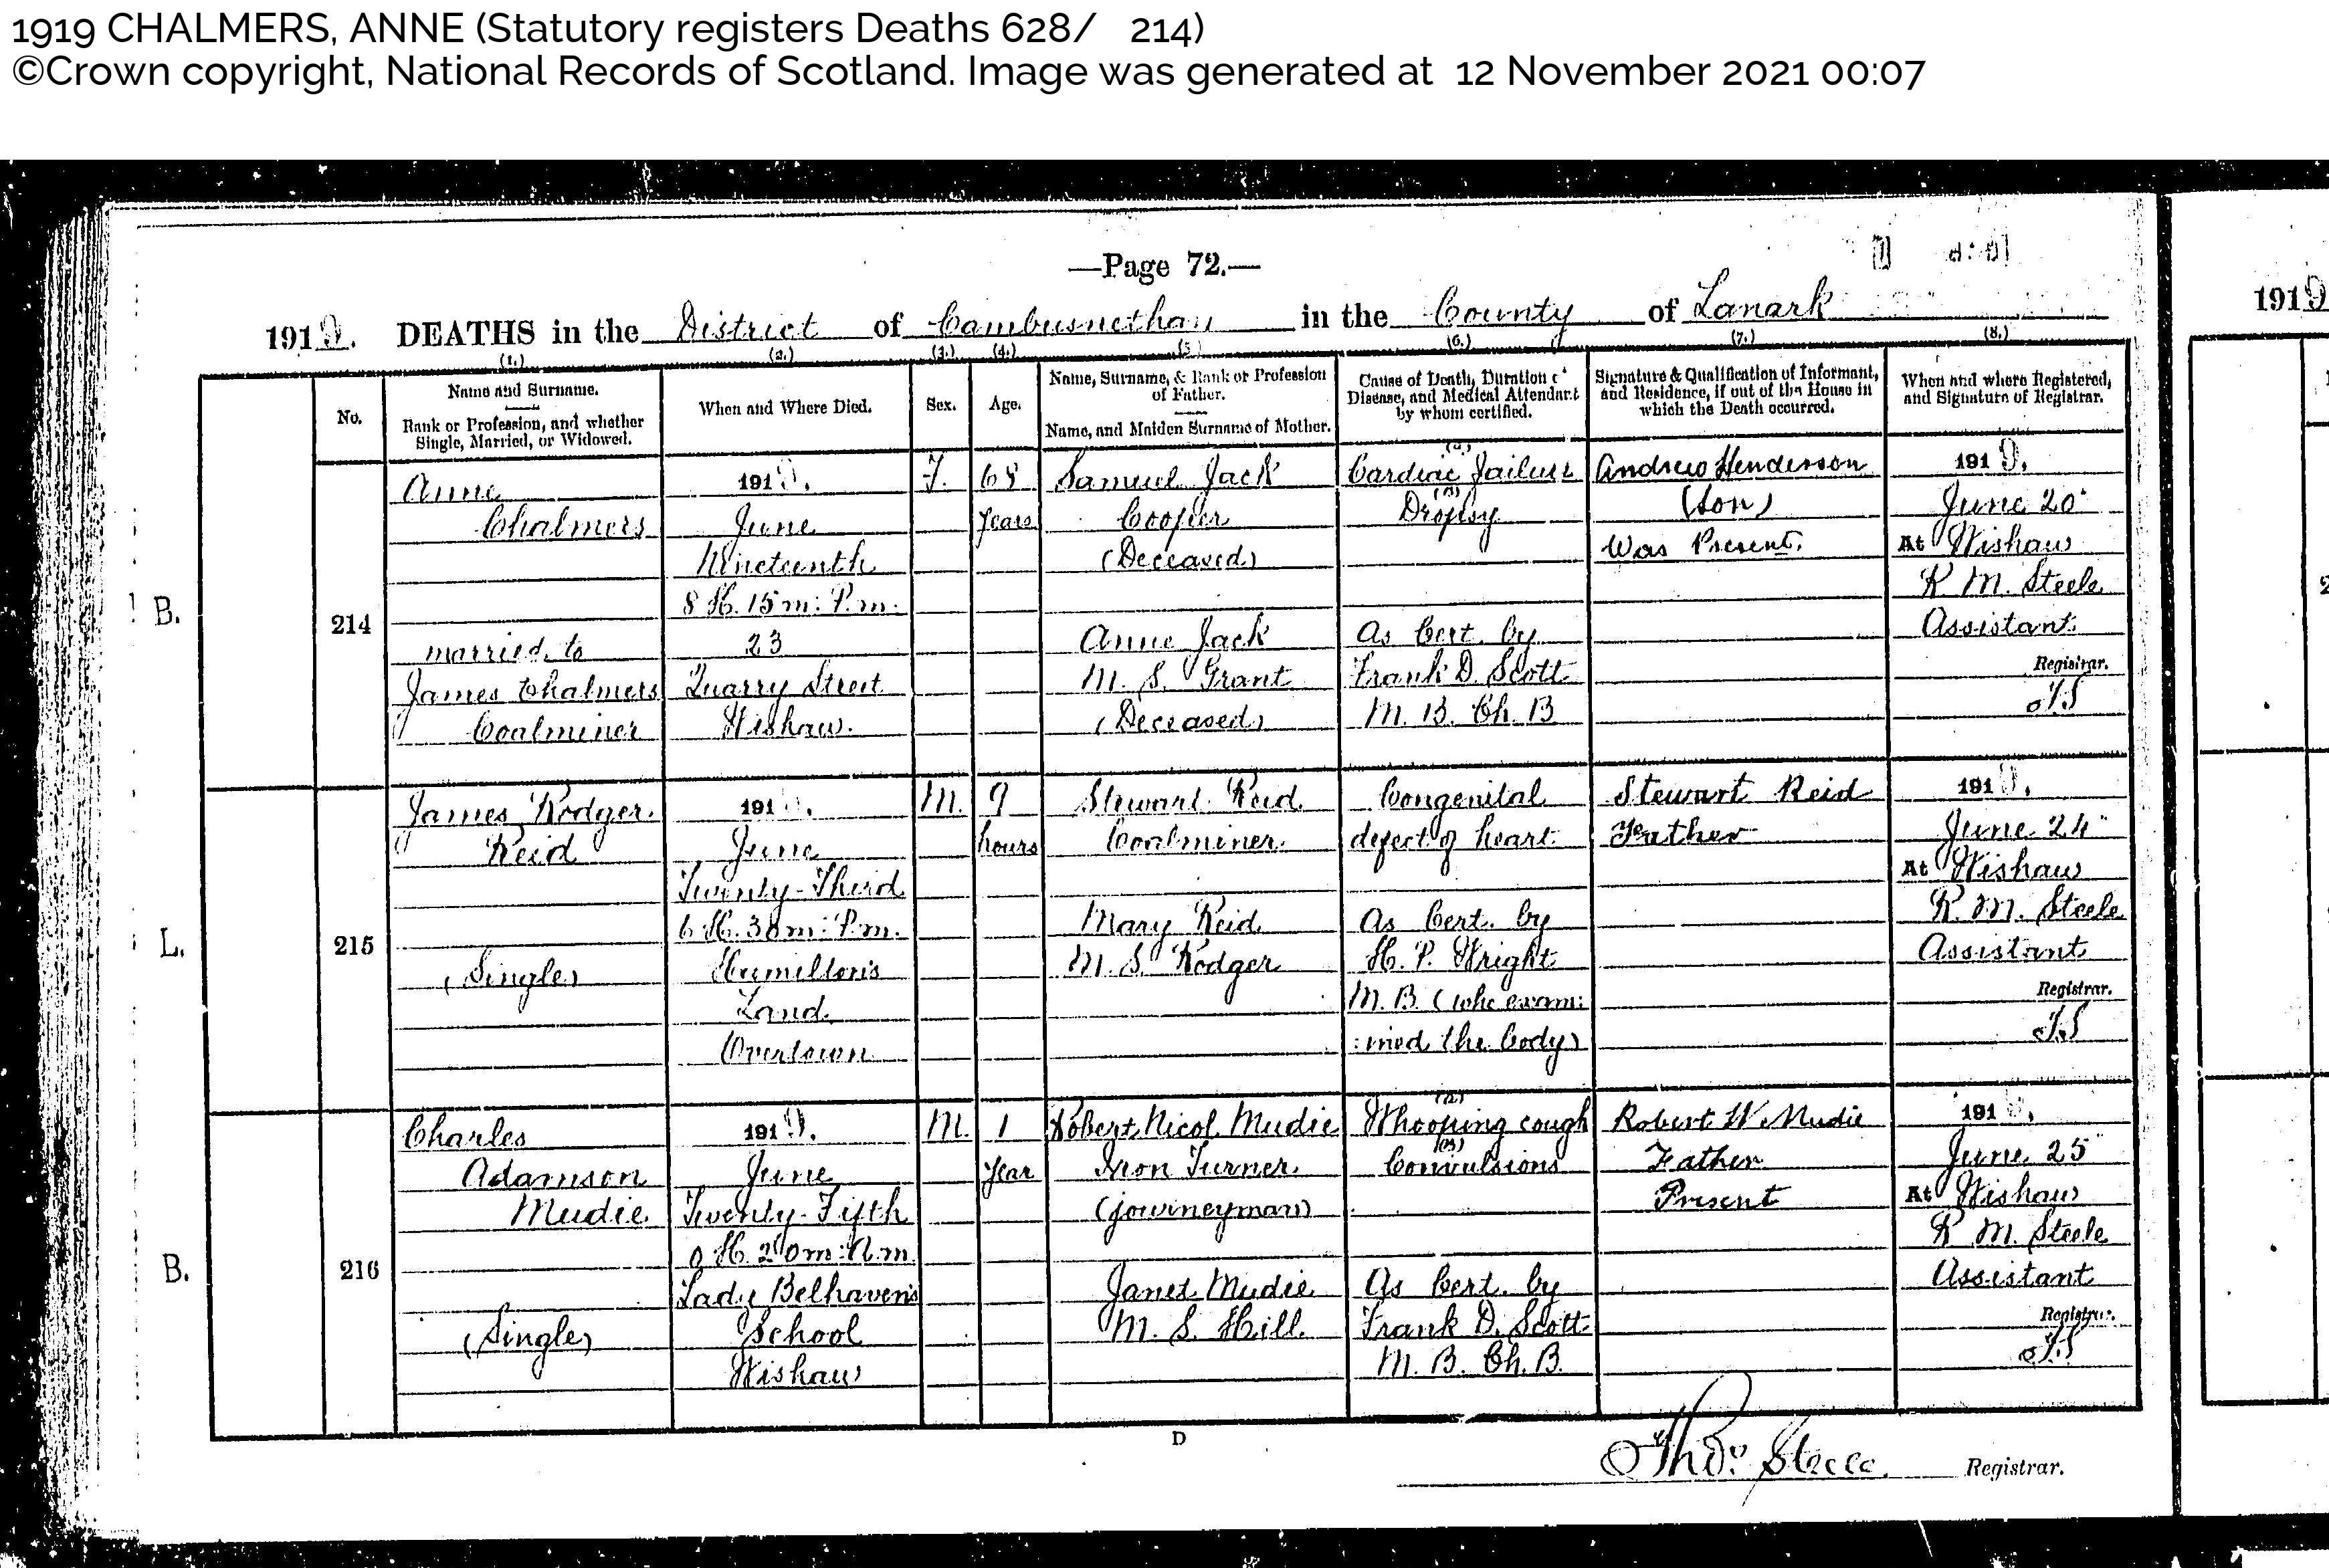 1919 CHALMERS, ANNE (Statutory registers Deaths 628/ 214)
©Crown copyright, National Records of Scotland. Image was generated at 12 November 2021 00:07
—Page 72.—
1919. DEATHS in the District of Cambusnethan in the County of Lanark
1919
(1.) (2.) (3.) (4.) (5.) (6.) (7.) (8.)
No.
Name and Surname.
Rank or Profession, and whether
Single, Married, or Widowed.
When and Where Died.
Sex.
Age.
Name, Surname, & Rank or Profession
of Father.
Name, and Maiden Surname of Mother.
Cause of Death, Duration of
Disease, and Medical Attendant
by whom certified.
Signature & Qualification of Informant,
and Residence, if out of the House in
which the Death occurred.
When and where Registered,
and Signature of Registrar.
B.
214
Anne
Chalmers
married to
James Chalmers
Coalminer
1919.
June
Nineteenth
8 H. 15 m: P.m.
23
Quarry Street
Wishaw.
F.
68
years
Samuel Jack
Cooper
(Deceased)
Anne Jack
M. S. Grant
(Deceased)
(a)
Cardiac Failure
Dropsy
As Cert. by
Frank D. Scott
M. B. Ch. B
Andrew Henderson
(Son)
Was Present.
1919.
June 20"
At Wishaw
R. M. Steele
Assistant
Registrar.
T.S
L.
215
James Rodger
Reid
(Single)
191 .
June
Twenty-Third
6 H. 30 m: P.m.
Hamilton's
Land
Overtown
M.
9
hours
Stewart Reid
Coalminer
Mary Reid
M. S. Rodger
Congenital
defect of heart
As Cert. by
H. P. Wright
M. B. (who exam:
:ined the body)
Stewart Reid
Father
1919.
June 24"
At Wishaw
R. M. Steele
Assistant
Registrar.
T.S
B.
216
Charles
Adamson
Mudie
(Single)
1919.
June
Twenty-Fifth
0 H. 20 m: A.m.
Lady Belhaven's
School
Wishaw
M.
1
year
Robert Nicol Mudie
Iron Turner
(journeyman)
Janet Mudie
M. S. Hill
(a)
Whooping cough
Convulsions
As Cert. by
Frank D. Scott
M. B. Ch. B.
Robert N Mudie
Father
Present
191 .
June 25"
At Wishaw
R. M. Steele
Assistant
Registrar.
T.S
D
Thos. Steele. Registrar.